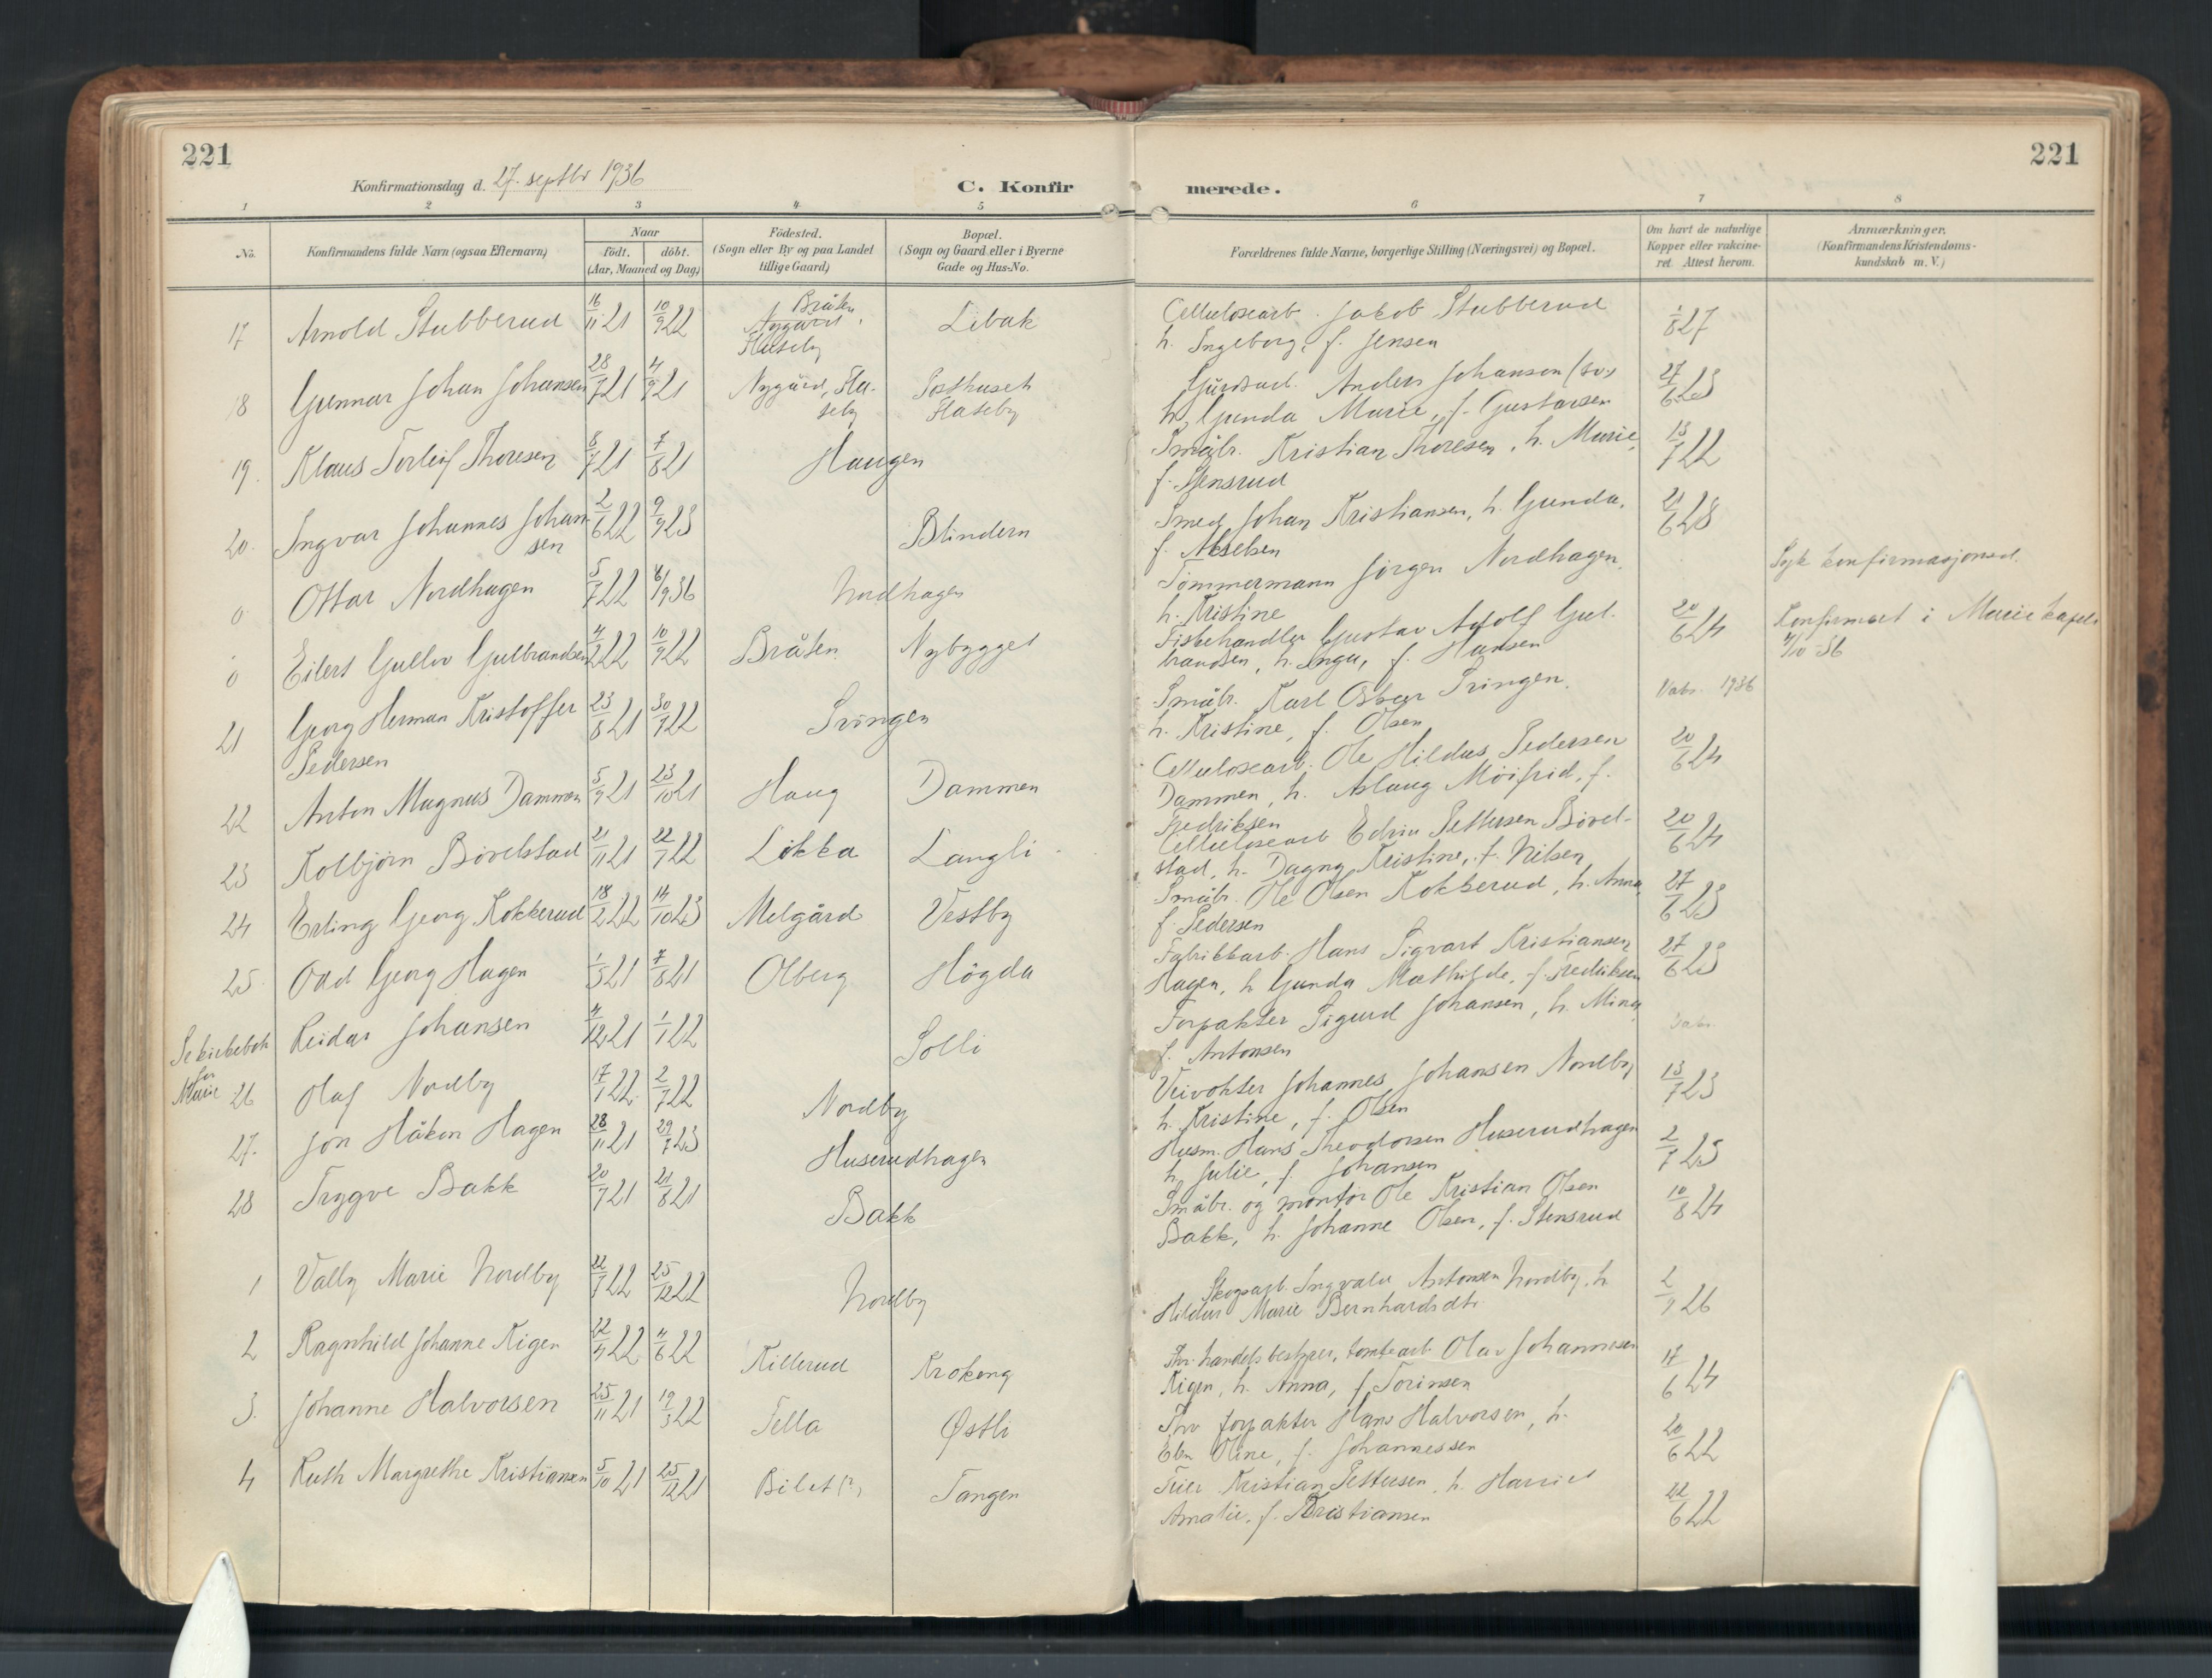 221
Konfirmationsdag d. 27. septbr 1936
C. Konfirmerede.
221
1 2 3 4 5 6 7 8
No.
Konfirmandens fulde Navn (ogsaa Efternavn)
Naar
födt. döbt.
(Aar, Maaned og Dag)
Födested.
(Sogn eller By og paa Landet
tillige Gaard)
Bopæl.
(Sogn og Gaard eller i Byerne
Gade og Hus-No.
Forældrenes fulde Navne, borgerlige Stilling (Næringsvei) og Bopæl.
Om havt de naturlige
Kopper eller vakcine-
ret. Attest herom.
Anmærkninger.
(Konfirmandens Kristendoms-
kundskab m. V.)
17 Arnold Stubberud 16/11 21 10/9 22 Bråten Nygård, Haseby Libak Cellulosearb. Jakob Stubberud
h. Ingeborg, f. Jensen 1/8 27
18 Gunnar Johan Johansen 28/7 21 4/9 21 Nygård, Ha-
seby Posthuset
Haseby Gårdsarb. Anders Johansen (sv)
h. Gunda Marie, f. Gustavsen 27/6 23
19. Klaus Torleif Thoresen 8/7 21 7/8 21 Haugen Småbr. Kristian Thoresen, h. Marie,
f. Stensrud 13/7 22
20. Ingvar Johannes Johan-
sen 2/6 22 9/9 23 Blindern Smed Johan Kristiansen, h. Gunda,
f. Akselsen 21/6 28
0 Ottar Nordhagen 5/7 22 6/9 36 Nordhagen Tømmermann Jørgen Nordhagen,
h. Kristine Syk konfirmasjonsd.
0 Eilert Gullov Gulbrandsen 4/2 22 10/9 22 Bråten Nybygget Fiskehandler Gustav Adolf Gul-
brandsen, h. Inga, f. Hansen 20/6 24 Konfirmert i Mariekapel
4/10 36
21 Georg Herman Kristoffer
Pedersen 23/8 21 30/7 22 Svingen Småbr. Karl Oskar Svingen,
h. Kristine, f. Olsen Vaks. 1936
22 Anton Magnus Dammen 5/9 21 23/10 21 Haug Dammen Cellulosearb. Ole Hildus Pedersen
Dammen, h. Aslaug Møifrid, f.
Fredriksen 20/6 24
23 Kolbjørn Bøvelstad 21/11 21 22/7 22 Løkka Langli Cellulosearb Edvin Pettersen Bøvel-
stad, h. Dagny Kristine, f. Nilsen 20/6 24
24 Erling Georg Kokkerud 18/2 22 14/10 23 Melgård Vestby Småbr. Ole Olsen Kokkerud, h. Anna,
f. Pedersen 27/6 23
25 Odd Georg Hagen 1/3 21 7/8 21 Olberg Høgda Fabrikkarb. Hans Sigvart Kristiansen
Hagen, h. Gunda Mathilde, f. Fredriksen 27/6 23
Se kirkebok
for
Marie Reidar Johansen 4/12 21 1/1 22 Solli Forpakter Sigurd Johansen, h. Mina,
f. Antonsen Vaks.
26 Olaf Nordby 17/1 22 2/7 22 Nordby Veivokter Johannes Johansen Nordby
h. Kristine, f. Olsen 13/7 23
27. Jon Håkon Hagen 28/11 21 29/7 23 Huserudhagen Husm. Hans Theodorsen Huserudhagen
h. Julie, f. Johansen 2/7 25
28 Trygve Bakk 20/7 21 21/8 21 Bakk Småbr. og montør Ole Kristian Olsen
Bakk, h. Johanne Olsen, f. Stensrud 10/8 24
1 Vally Marie Nordby 22/7 22 25/12 22 Nordby Skogsarb. Ingvald Antonsen Nordby, h
Hildur Marie Bernhardsdtr. 2/7 26
2 Ragnhild Johanne Kigen 22/4 22 4/6 22 Killerud Krokeng Fhv. handelsbestyrer, tomtearb. Olav Johannesen
Kigen, h. Anna, f. Torinsen 17/6 24
3. Johanne Halvorsen 25/11 21 19/3 22 Tella Østli Fhv forpakter Hans Halvorsen, h.
Ebn Oline, f. Johannessen 20/6 22
4 Ruth Margrethe Kristiansen 5/10 21 25/12 21 Bilet (?) Tangen Feier Kristian Pettersen, h. Harriet
Amalie, f. Kristiansen 22/6 22